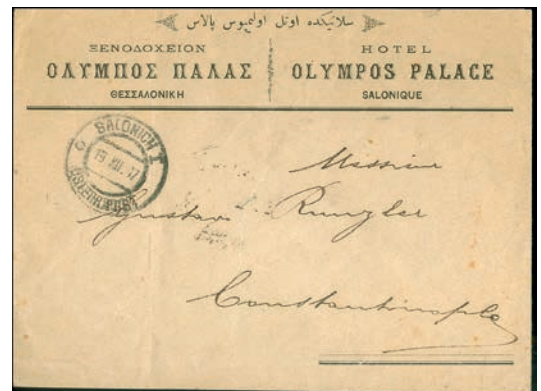 سلانیکده اوتل اولمپوس پالاس
ΞΕΝΟΔΟΧΕΙΟΝ
ΟΛΥΜΠΟΣ ΠΑΛΑΣ
ΘΕΣΣΑΛΟΝΙΚΗ
HOTEL
OLYMPOS PALACE
SALONIQUE
SALONICH I
19 XII 17
ÖSTERR. POST
Monsieur
Gustave Rungler
Constantinople